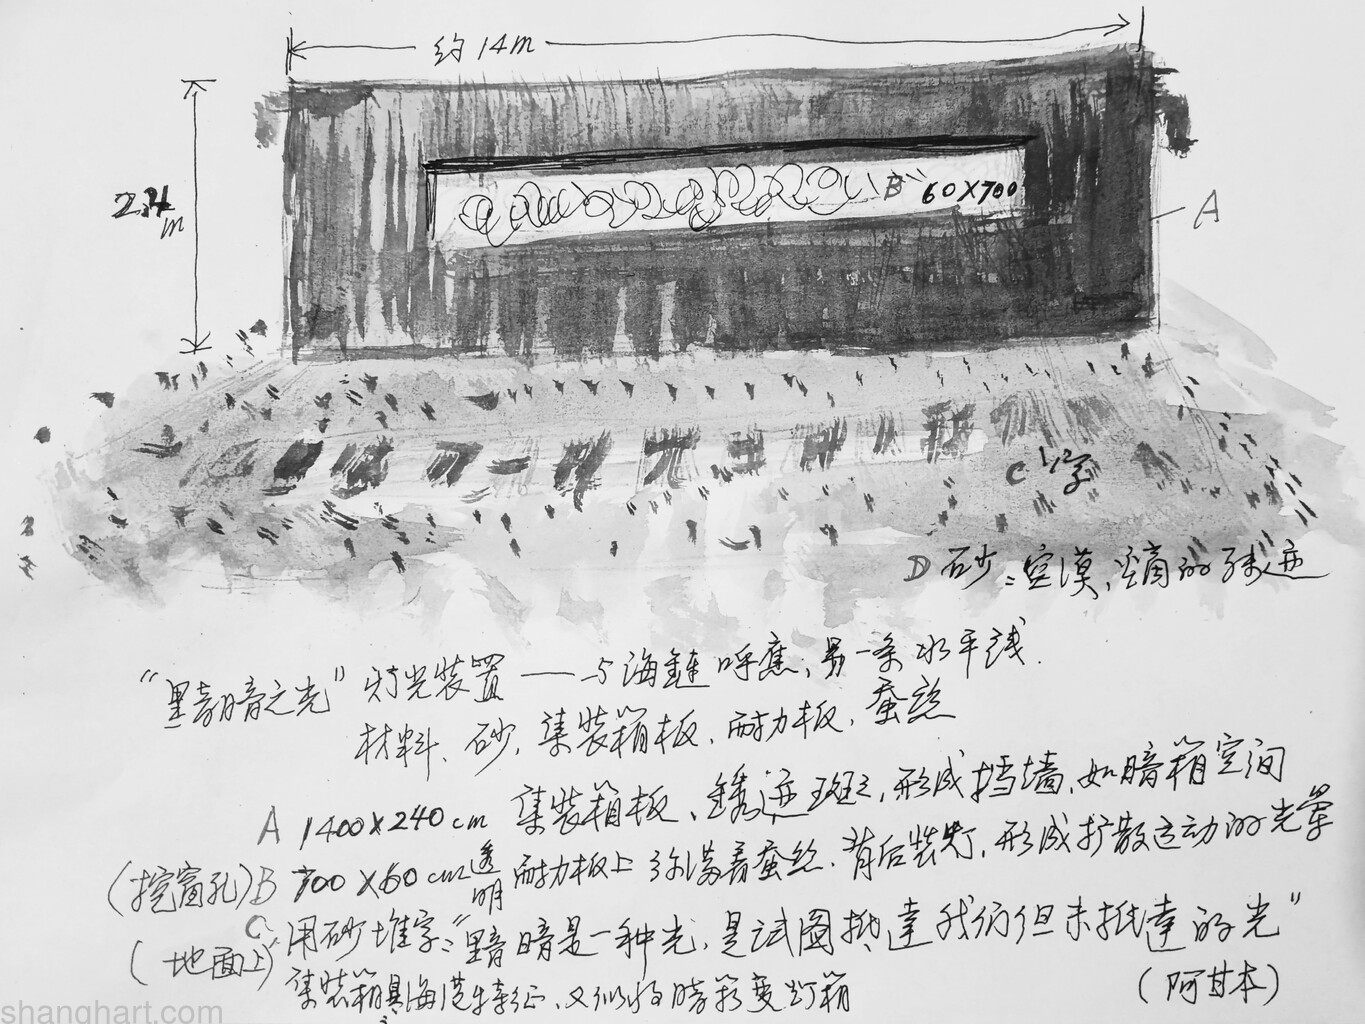 约14m
2.4m
B 60×700
A
C 12字
D 砂:空漠,的残迹
“黑暗之光”灯光装置——与海链呼应,另一条水平线.
材料、砂,集装箱板、耐力板、蚕丝
A 1400×240cm 集装箱板、锈迹斑斑,形成挡墙,如暗箱空间
(挖窗孔)B 700×60cm透明耐力板上弥满着蚕丝.背后装灯,形成扩散运动的光晕
(地面上)C、用砂堆字:“黯暗是一种光,是试图抵达我们但未抵达的光”
(阿甘本)
集装箱具海港特征,又似将暗箱变灯箱
shanghart.com